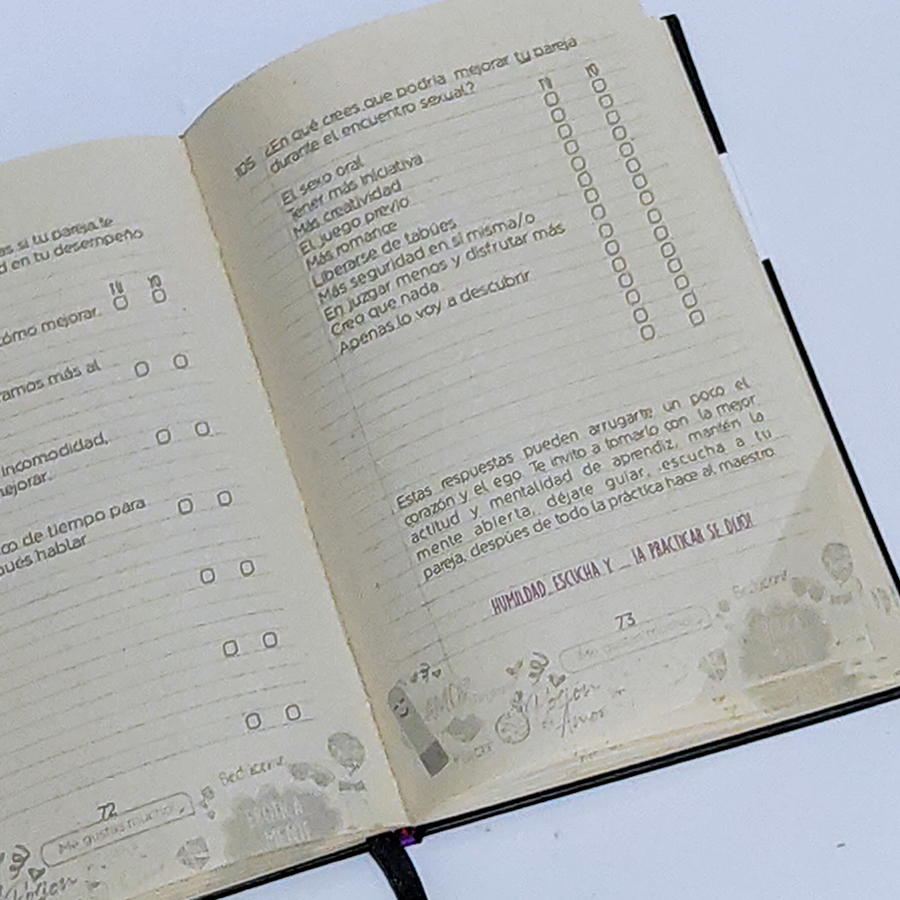 as si tu pareja te
d en tu desempeño
TÚ YO
cómo mejorar.
ramos más al
incomodidad,
mejorar.
co de tiempo para
pués hablar
72
Sedúceme
Me gustas mucho
105 ¿En qué crees que podría mejorar tu pareja
durante el encuentro sexual?
TÚ YO
El sexo oral
Tener más iniciativa
Más creatividad
El juego previo
Más romance
Liberarse de tabúes
Más seguridad en sí misma/o
En juzgar menos y disfrutar más
Creo que nada
Apenas lo voy a descubrir
Estas respuestas pueden arrugarte un poco el
corazón y el ego. Te invito a tomarlo con la mejor
actitud y mentalidad de aprendiz, mantén la
mente abierta, déjate guiar, escucha a tu
pareja, despúes de todo la práctica hace al maestro
HUMILDAD, ESCUCHA Y _ ¡A PRACTICAR SE DIJO!
73
Me gustas mucho
Sedúceme
AMOR
Amor